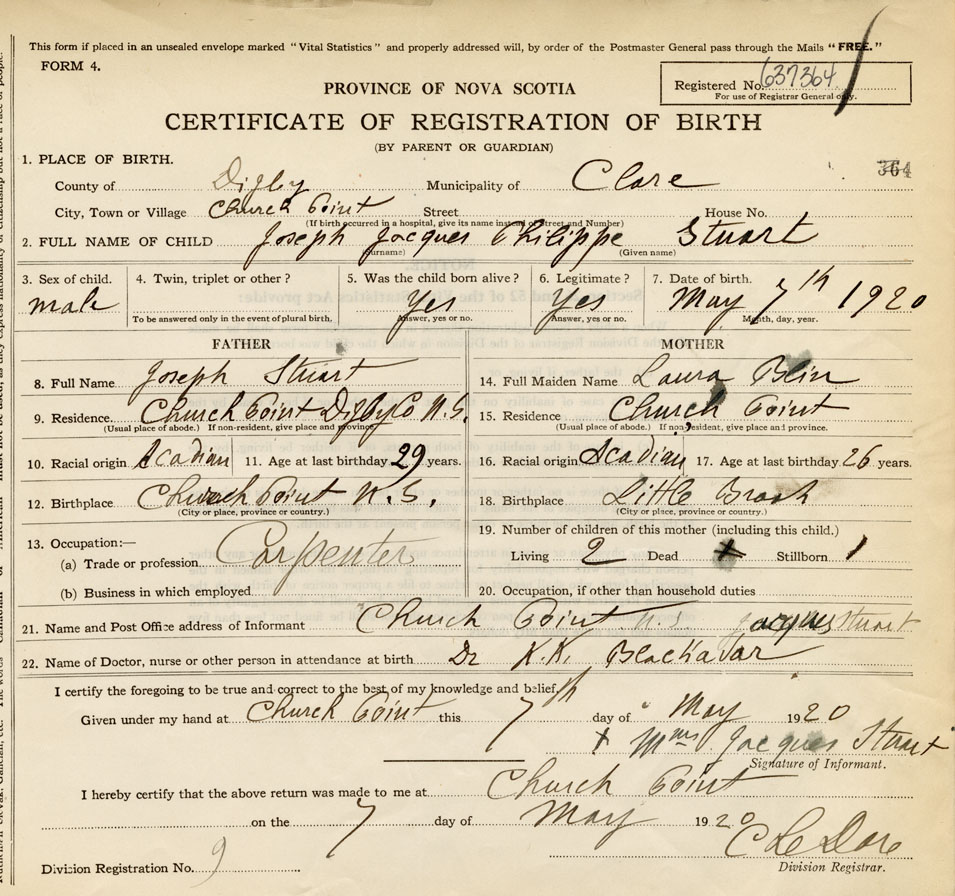 This form if placed in an unsealed envelope marked "Vital Statistics" and properly addressed will, by order of the Postmaster General pass through the Mails "FREE."
FORM 4.
Registered No. 637364
For use of Registrar General only.
PROVINCE OF NOVA SCOTIA
CERTIFICATE OF REGISTRATION OF BIRTH
(BY PARENT OR GUARDIAN)
1. PLACE OF BIRTH.
364
County of Digby Municipality of Clare
City, Town or Village Church Point Street House No.
(If birth occurred in a hospital, give its name instead of Street and Number)
2. FULL NAME OF CHILD Joseph Jacques Philippe Stuart
(Surname) (Given name)
3. Sex of child. 4. Twin, triplet or other? 5. Was the child born alive? 6. Legitimate? 7. Date of birth.
male Yes Yes May 7th 1920
To be answered only in the event of plural birth. Answer, yes or no. Answer, yes or no. Month, day, year.
FATHER
8. Full Name Joseph Stuart
9. Residence Church Point Digby Co N.S.
(Usual place of abode.) If non-resident, give place and province.
10. Racial origin Acadian 11. Age at last birthday 29 years.
12. Birthplace Church Point N.S.
(City or place, province or country.)
13. Occupation:—
(a) Trade or profession Carpenter
(b) Business in which employed
MOTHER
14. Full Maiden Name Laura Blin
15. Residence Church Point
(Usual place of abode.) If non-resident, give place and province.
16. Racial origin Acadian 17. Age at last birthday 26 years.
18. Birthplace Little Brook
(City or place, province or country.)
19. Number of children of this mother (including this child.)
Living 2 Dead Stillborn 1
20. Occupation, if other than household duties
21. Name and Post Office address of Informant Church Point N.S. Jacques Stuart
22. Name of Doctor, nurse or other person in attendance at birth Dr
I certify the foregoing to be true and correct to the best of my knowledge and belief,
Given under my hand at Church Point this 7th day of May 1920
x Mme Jacques Stuart
Signature of Informant.
I hereby certify that the above return was made to me at Church Point
on the 7 day of May 1920
Division Registration No. 9
Division Registrar.